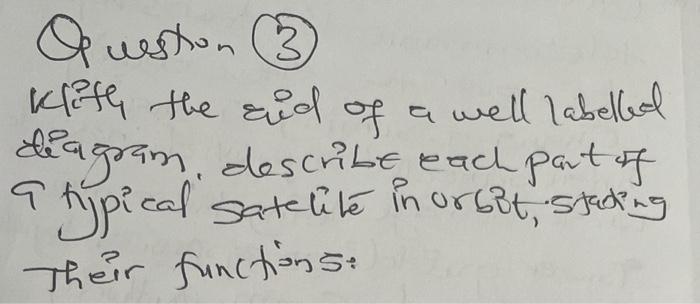 Question ③
With the aid of a well labelled
diagram, describe each part of
a typical satelite in orbit, stating
Their functions: